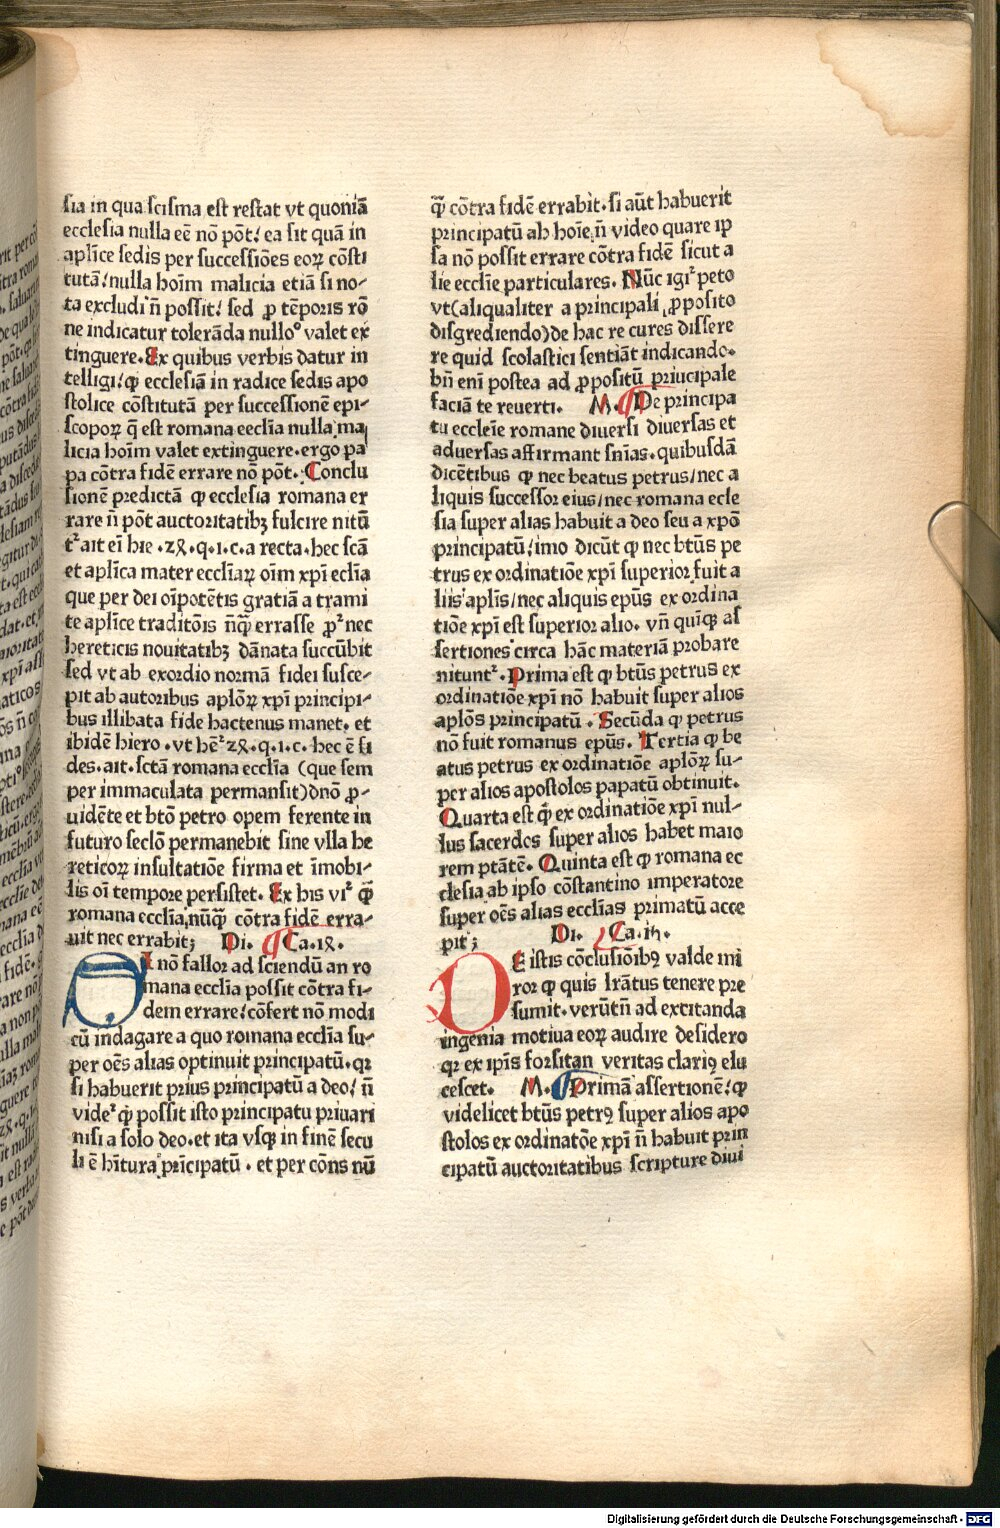 sia in qua scisma est restat vt quoniã
ecclesia nulla eẽ nõ põt! ea sit quã in
apl̃ice sedis per successiões eoꝝ cõsti
tutã! nulla hoĩm malicia etiã si no⸗
ta excludi ñ possit! sed ꝓ tẽporis rõ
ne indicatur tolerãda nulloº valet ex
tinguere. Ex quibus verbis datur in
telligi! ꝙ ecclesiã in radice sedis apo
stolice cõstitutã per successionẽ epi⸗
scopoꝝ q̃ est romana eeclia nulla ma
licia hoĩm valet extinguere. ergo pa
pa cõtra fidẽ errare nõ põt. Conclu
sionẽ predictã ꝙ ecclesia romana er
rare ñ põt auctoritatibꝫ fulcire nitũ
t᷑ ait eĩ hie .24.q.1.c.a recta. hec scã
et apl̃ica mater eccl̃iaꝝ oĩm xp̃i ecl̃ia
que per dei oĩpotẽtis gratiã a trami
te apl̃ice traditõis nũq̃ errasse ꝓ᷑ nec
hereticis nouitatibꝫ dãnata succũbit
sed vt ab exordio normã fidei susce⸗
pit ab autoribus apl̃oꝝ xp̃i principi⸗
bus illibata fide hactenus manet. et
ibidẽ hiero . vt hẽ᷑ 24.q.1.c. hec ẽ fi
des. ait. sc̃tã romana eccl̃ia (que sem
per immaculata permansit) dnõ ꝓ⸗
uidẽte et btõ petro opem ferente in
futuro seclõ permanebit sine vlla he
reticoꝝ insultatiõe firma et ĩmobi⸗
lis oĩ tempore persistet. Ex his vi᷑ ꝙ̃
romana eccl̃ia nũq̃ cõtra fidẽ erra⸗
uit nec errabit; Di. Ca.14.
SI nõ fallor ad sciendũ an ro
mana eccl̃ia possit cõtra fi⸗
dem errare! cõfert nõ modi
cũ indagare a quo romana eccl̃ia su⸗
per oẽs alias optinuit principatũ. qꝛ
si habuerit prius principatũ a deo! ñ
vide᷑ ꝙ̃ possit isto principatu priuari
nisi a solo deo. et ita vsqꝫ in finẽ secu
li ẽ hĩtura prĩcipatũ . et per cõns nũ
q̃ cõtra fidẽ errabit. si aũt habuerit
principatũ ab hoĩe ñ video quare ip
sa nõ possit errare cõtra fidẽ sicut a
lie eccl̃ie particulares. Nũc igi᷑ peto
vt (aliqualiter a principali ꝓposito
disgrediendo) de hac re cures dissere
re quid scolastici sentiãt indicando.
bñ enĩ postea ad ꝓpositũ priucipale
faciã te reuerti. M. De principa
tu eccleĩe romane diuersi diuersas et
aduersas affirmant snĩas. quibusdã
dicẽtibus ꝙ nec beatus petrus/ nec a
liquis successor eius/ nec romana ecle
sia super alias habuit a deo seu a xpõ
principatũ! imo dicũt ꝙ nec btũs pe
trus ex ordinatiõe xp̃i superior fuit a
liis apl̃is/ nec aliquis ep̃us ex ordina
tiõe xp̃i est superior alio. vñ quĩqꝫ as
sertiones circa hãc materiã probare
nitunt᷑. Prima est ꝙ btũs petrus ex
ordinatiõe xp̃i nõ habuit super alios
apl̃os principatũ . Secũda ꝙ petrus
nõ fuit romanus ep̃us. Tertia ꝙ be
atus petrus ex ordinatiõe aplõꝝ su⸗
per alios apostolos papatũ obtinuit.
Quarta est ꝙ̃ ex ordinatiõe xp̃i nul⸗
lus sacerdos super alios habet maio
rem ptãtẽ. Quinta est ꝙ romana ec
clesia ab ipso cõstantino imperatore
super oẽs alias eccl̃ias primatũ acce
pit; Di. Ca.iħ.
DE istis cõclusiõibꝰ valde mi
ror ꝙ quis lr̃atus tenere pre
sumit. verũtñ ad excitanda
ingenia motiua eoꝝ audire desidero
qꝛ ex ip̃is forsitan veritas clariꝰ elu
cescet. M. Primã assertionẽ! ꝙ
videlicet btũs petrꝰ super alios apo
stolos ex ordinatõe xp̃i ñ habuit prin
cipatũ auctoritatibus scripture diui
Digitalisierung gefördert durch die Deutsche Forschungsgemeinschaft - DFG